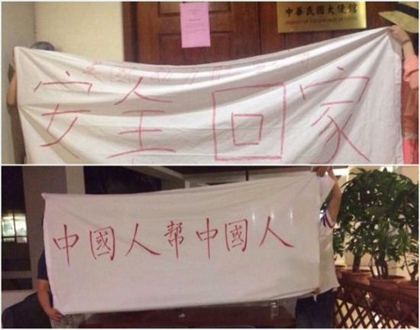 中華民國大使館
安全回家
中國人幫中國人